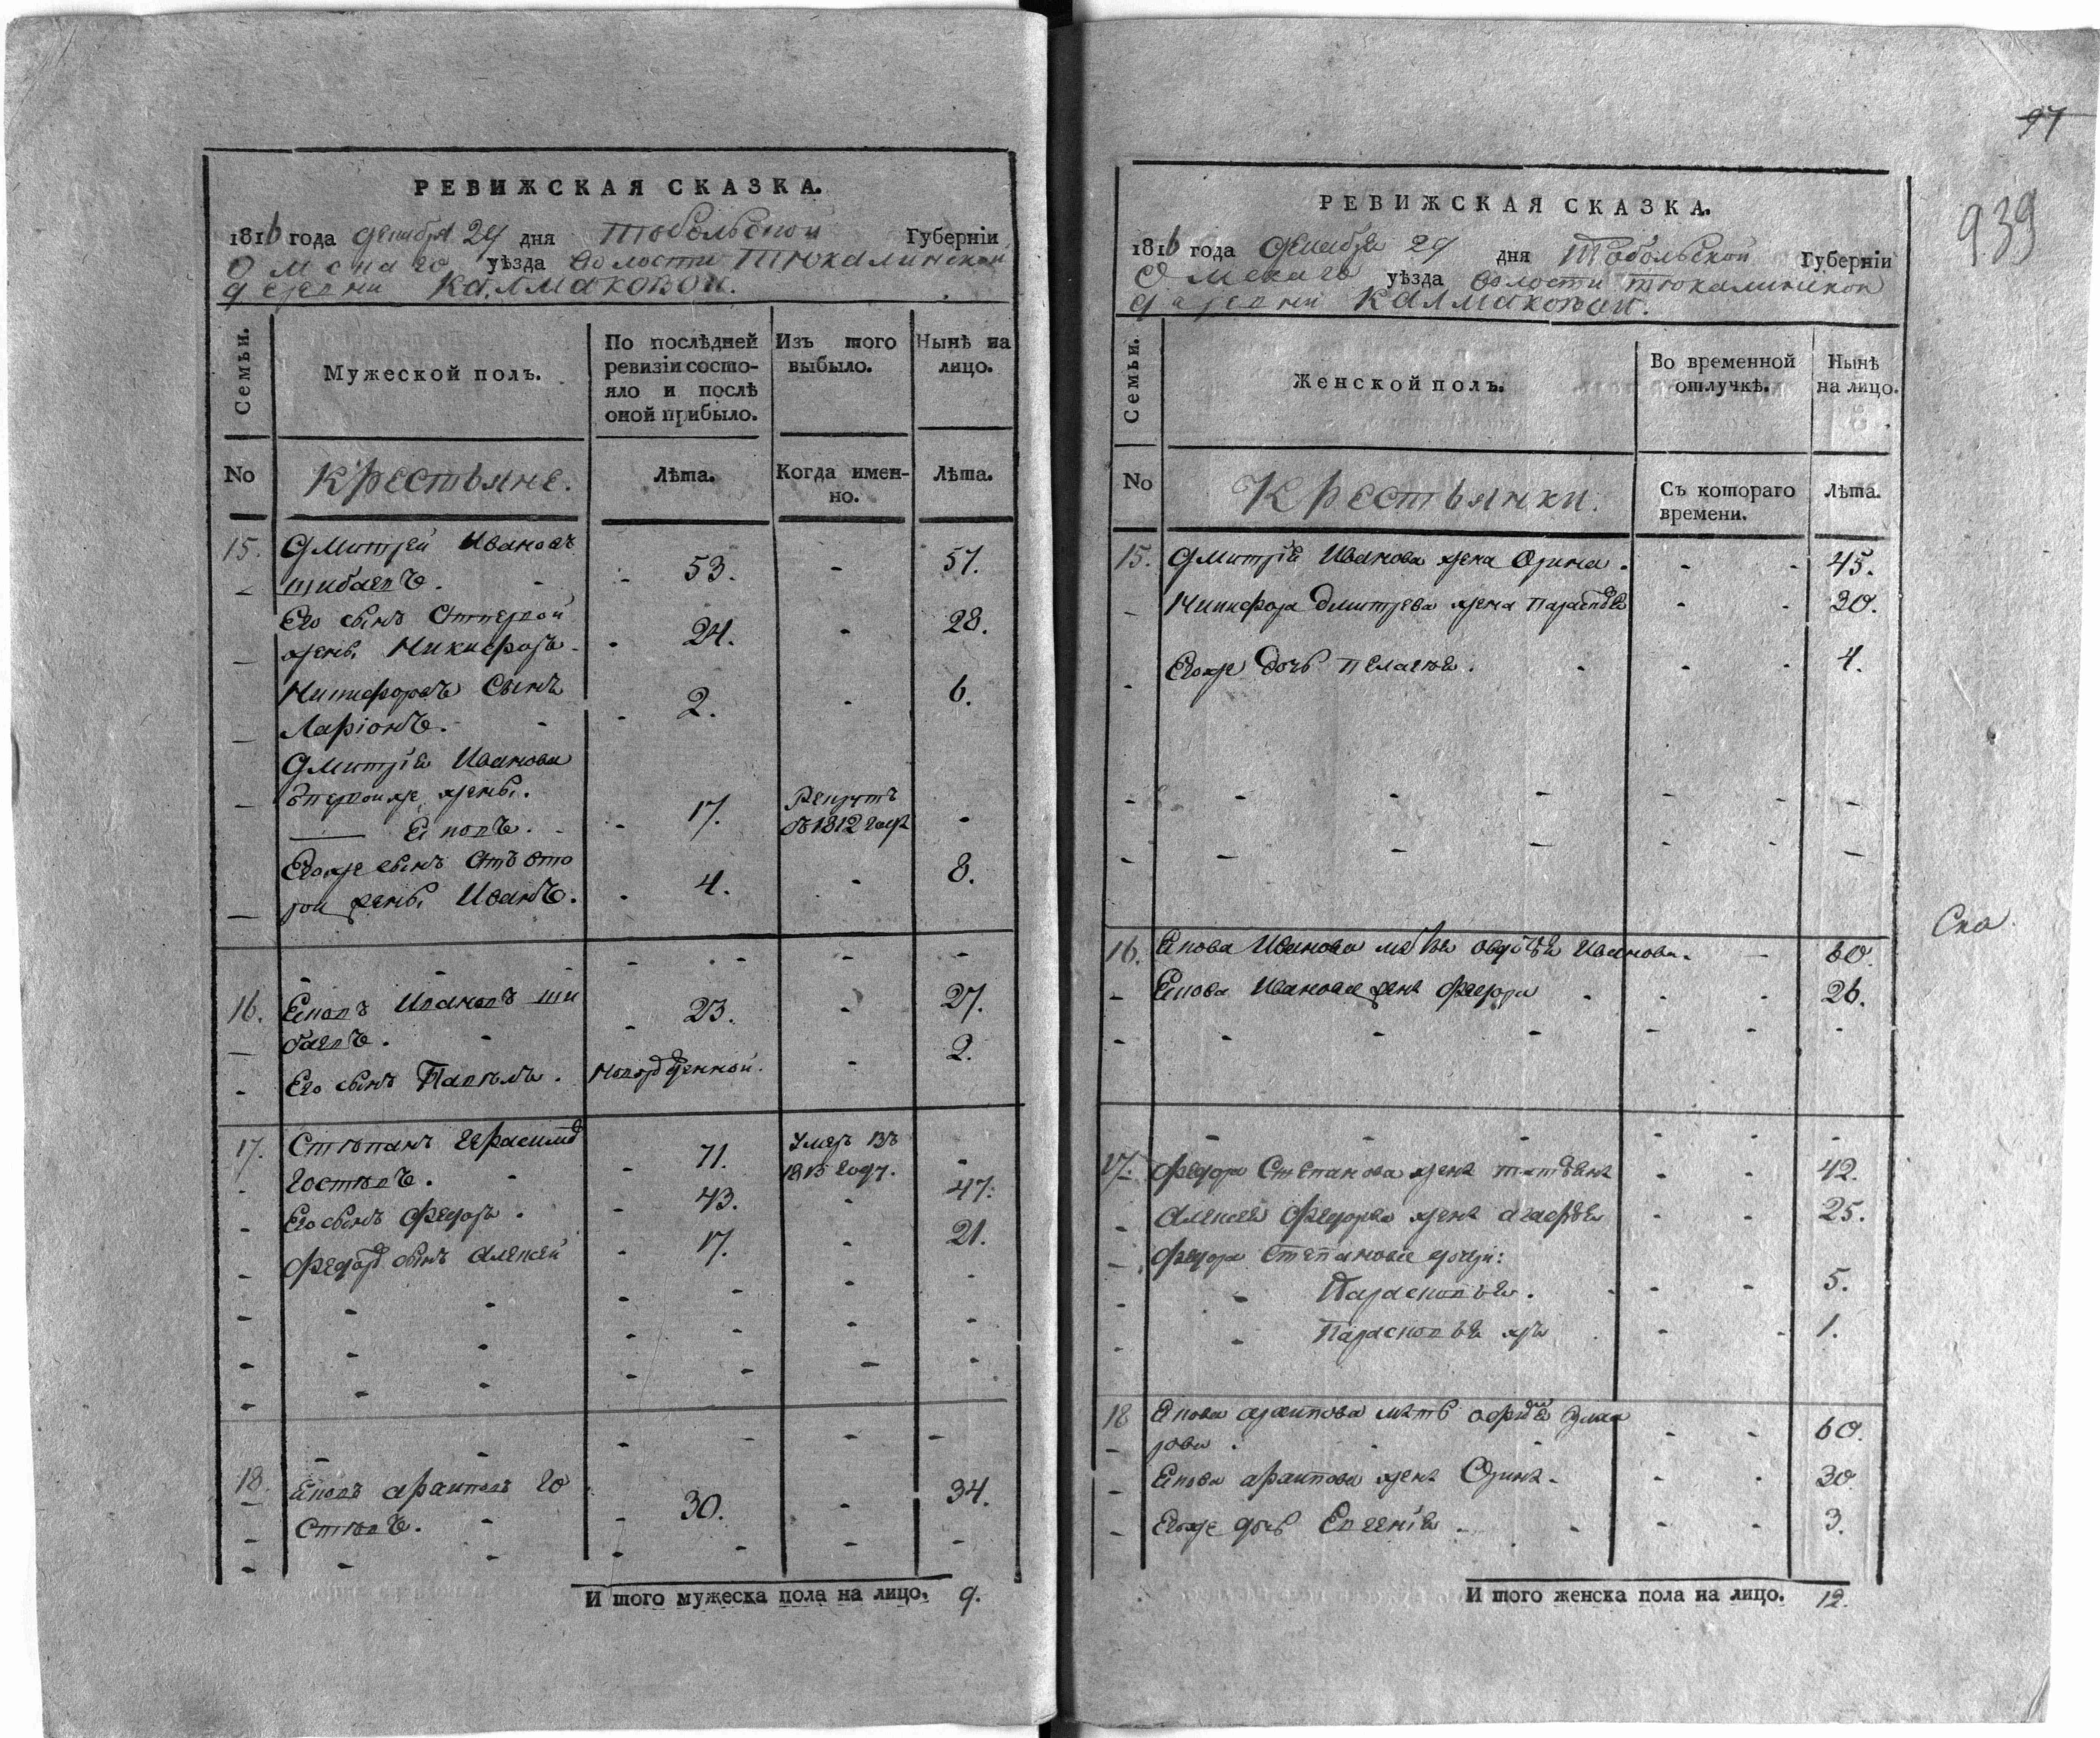 РЕВИЖСКАЯ СКАЗКА.
1816 года декабря 29 дня Тобольской Губерніи
Омскаго уѣзда волости Тюкалинской
деревни Калмаковой.
Семьи.
Мужеской полъ.
По послѣдней
ревизіи состо-
яло и послѣ
оной прибыло.
Изъ того
выбыло.
Нынѣ на
лицо.
No
Крестьяне.
Лѣта.
Когда имен-
но.
Лѣта.
15. Дмитрей Ивановъ
шибаевъ. 53. 57.
Его сынъ Отпервой
жены Никифоръ 24. 28.
Никифоровъ Сынъ
Ларіонъ. 2. 6.
Дмитрія Иванова
первой же жены. Рекрутъ
Екковъ. 17. въ 1812 году
Егоже сынъ Отъ вто
рой жены Иванъ. 4. 8.
16. Ивановъ ши 23. 27.
баевъ.
Его сынъ Павелъ. новорожденной. 2.
17. Степанъ Герасимов 71. Умеръ въ
Гостевъ. 1815 году.
Его сынъ Федоръ. 43. 47.
Федоров сынъ Алексей 17. 21.
18. Архиповъ Го 30. 34.
стевъ.
И того мужеска пола на лицо. 9.
97
939
РЕВИЖСКАЯ СКАЗКА.
1816 года Декабря 29 дня Тобольской Губерніи
Омскаго уѣзда волости тюкалинской
деревни Калмаковой.
Семьи.
Женской полъ.
Во временной
отлучкѣ.
Нынѣ
на лицо.
No
Крестьянки.
Съ котораго
времени.
Лѣта.
15. Дмитрія Иванова жена Орина. 45.
Никифора Дмитрева жена Параскв 20.
Егоже Дочь Пелагея. 4.
16. Иванова Иванова. 60.
Иванова жена Федора 26.
17. Федора Степанова жена татьяна 42.
Алексея Федорова жена агафья 25.
Федора Степанова дочери:
Парасковья. 5.
Парасковья же 1.
18 архипова мать 60.
рова.
архипова жена Орина. 30.
Егоже дочь Евгенія. 3.
Ска
И того женска пола на лицо. 12.